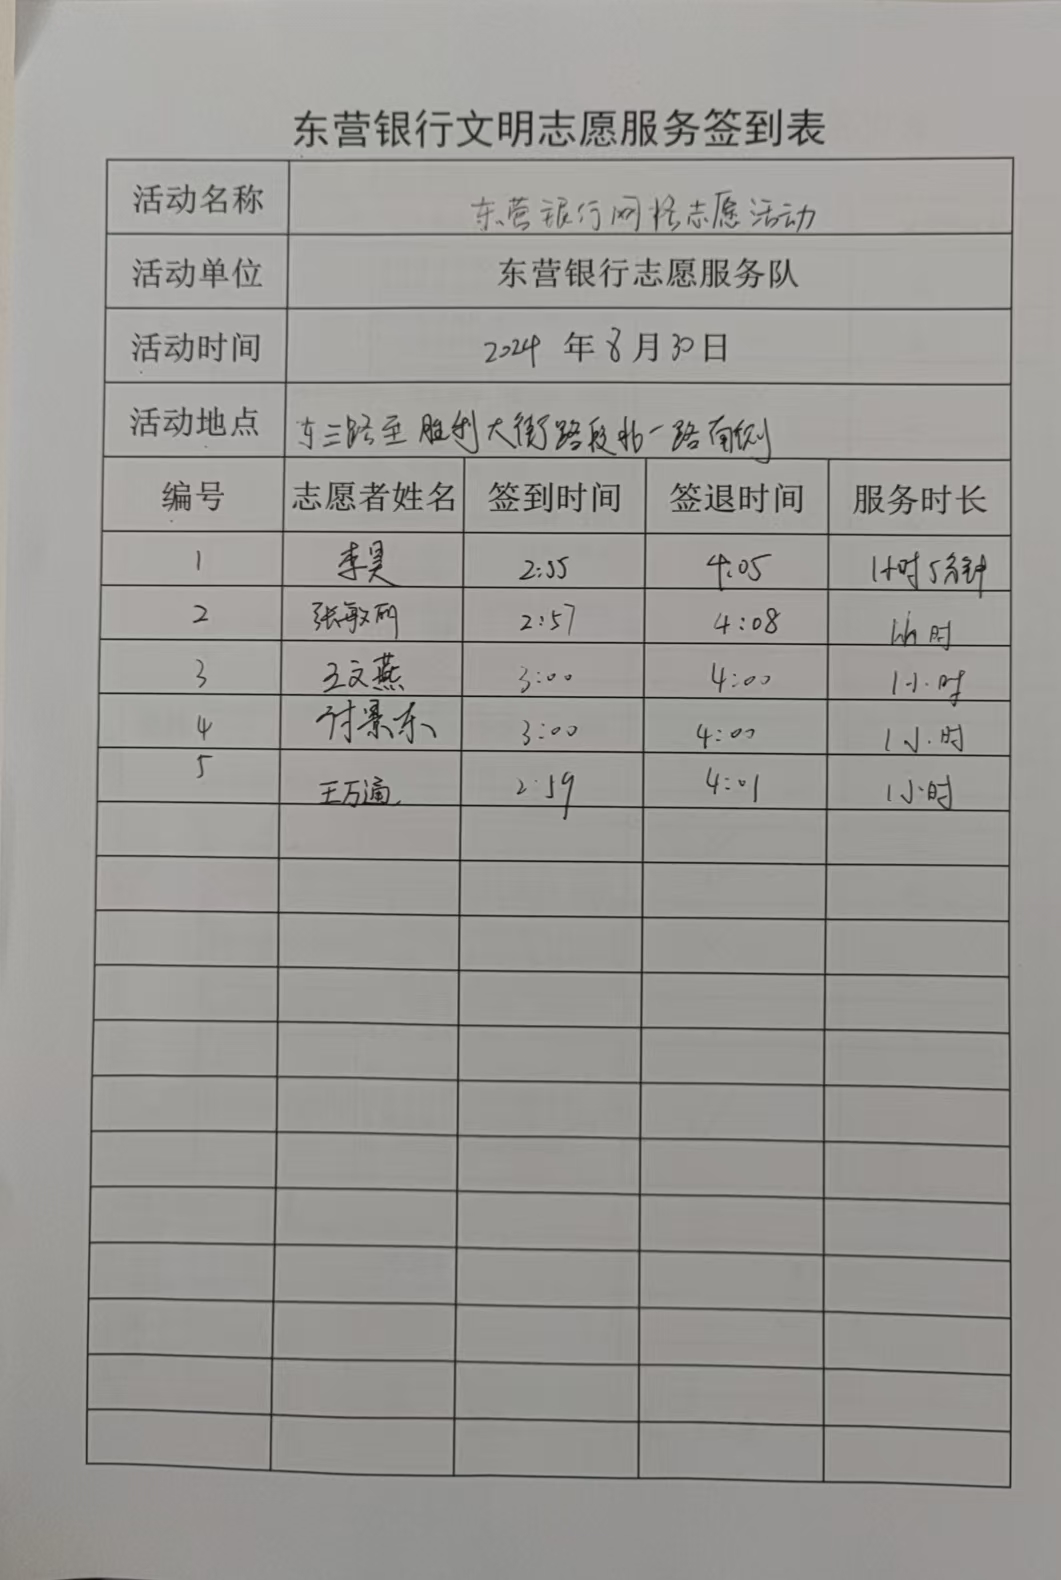 东营银行文明志愿服务签到表
活动名称 东营银行网格志愿活动
活动单位 东营银行志愿服务队
活动时间 2024 年 8 月 30 日
活动地点 东三路至胜利大街路段北一路南侧
编号 志愿者姓名 签到时间 签退时间 服务时长
1 李昊 2:55 4:05 1小时5分钟
2 张敏丽 2:57 4:08 1小时
3 王文燕 3:00 4:00 1小时
4 付景东 3:00 4:00 1小时
5 王万通 2:59 4:01 1小时